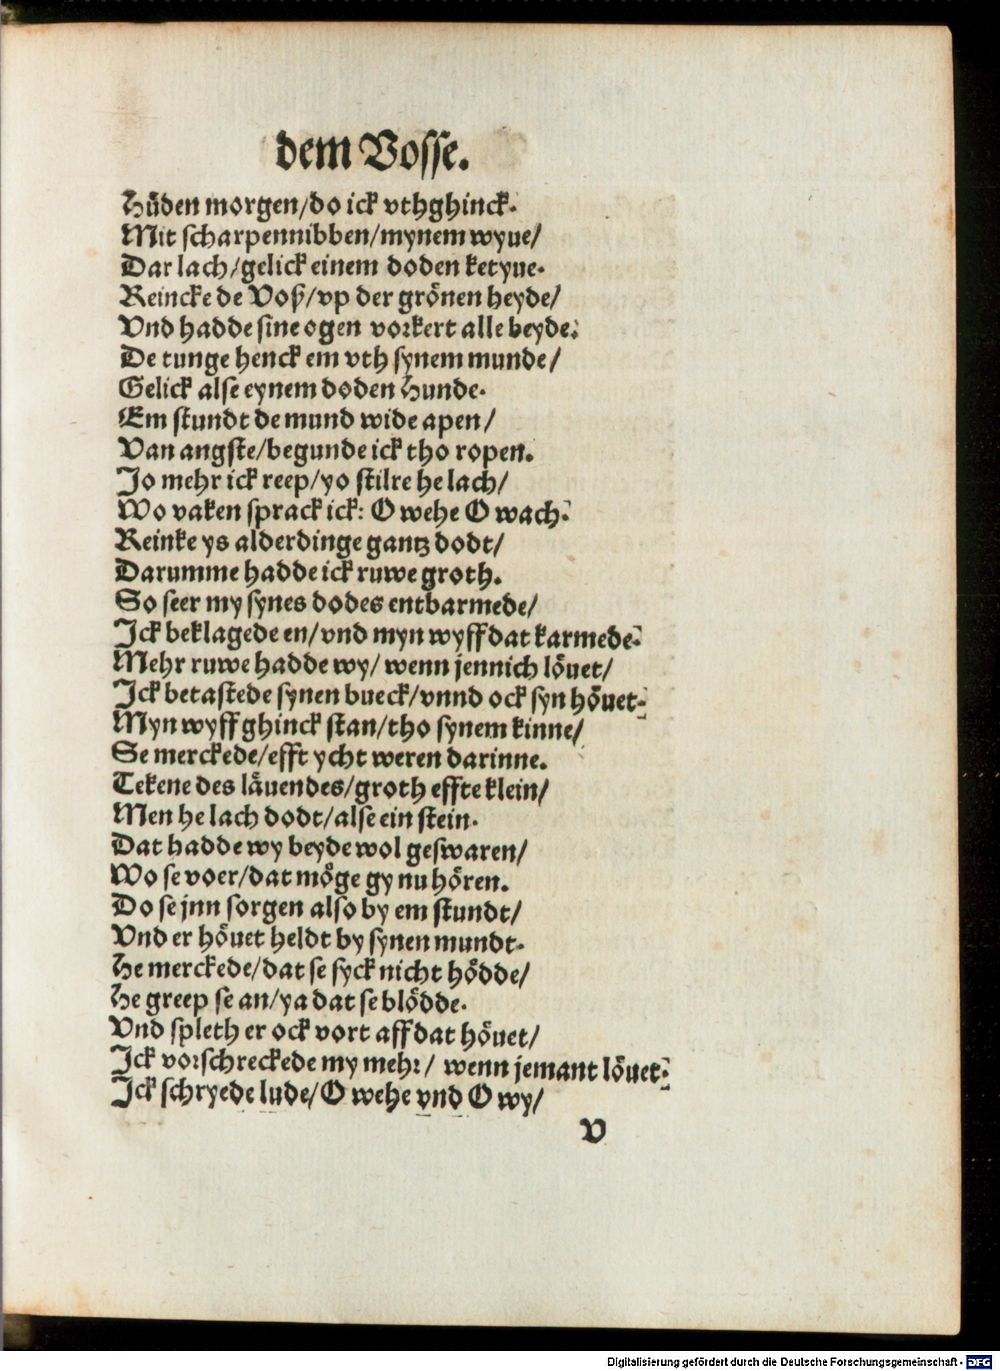 dem Vosse.
Hüden morgen/do ick vthghinck.
Mit scharpennibben/mynem wyue/
Dar lach/gelick einem doden ketyue.
Reincke de Voß/vp der grönen heyde/
Vnd hadde sine ogen vorkert alle beyde.
De tunge henck em vth synem munde/
Gelick alse eynem doden Hunde.
Em stundt de mund wide apen/
Van angste/begunde ick tho ropen.
Jo mehr ick reep/yo stilre he lach/
Wo vaken sprack ick: O wehe O wach.
Reinke ys alderdinge gantz dodt/
Darumme hadde ick ruwe groth.
So seer my synes dodes entbarmede/
Jck beklagede en/vnd myn wyff dat karmede.
Mehr ruwe hadde wy/ wenn jennich löuet/
Jck betastede synen bueck/vnnd ock syn höuet.
Myn wyff ghinck stan/tho synem kinne/
Se merckede/efft ycht weren darinne.
Tekene des läuendes/groth effte klein/
Men he lach dodt/alse ein stein.
Dat hadde wy beyde wol geswaren/
Wo se voer/dat möge gy nu hören.
Do se jnn sorgen also by em stundt/
Vnd er höuet heldt by synen mundt.
He merckede/dat se syck nicht hödde/
He greep se an/ya dat se blödde.
Vnd spleth er ock vort aff dat höuet/
Jck vorschreckede my mehr/ wenn jemant löuet.
Jck schryede lude/O wehe vnd O wy/
V
Digitalisierung gefördert durch die Deutsche Forschungsgemeinschaft - DFG